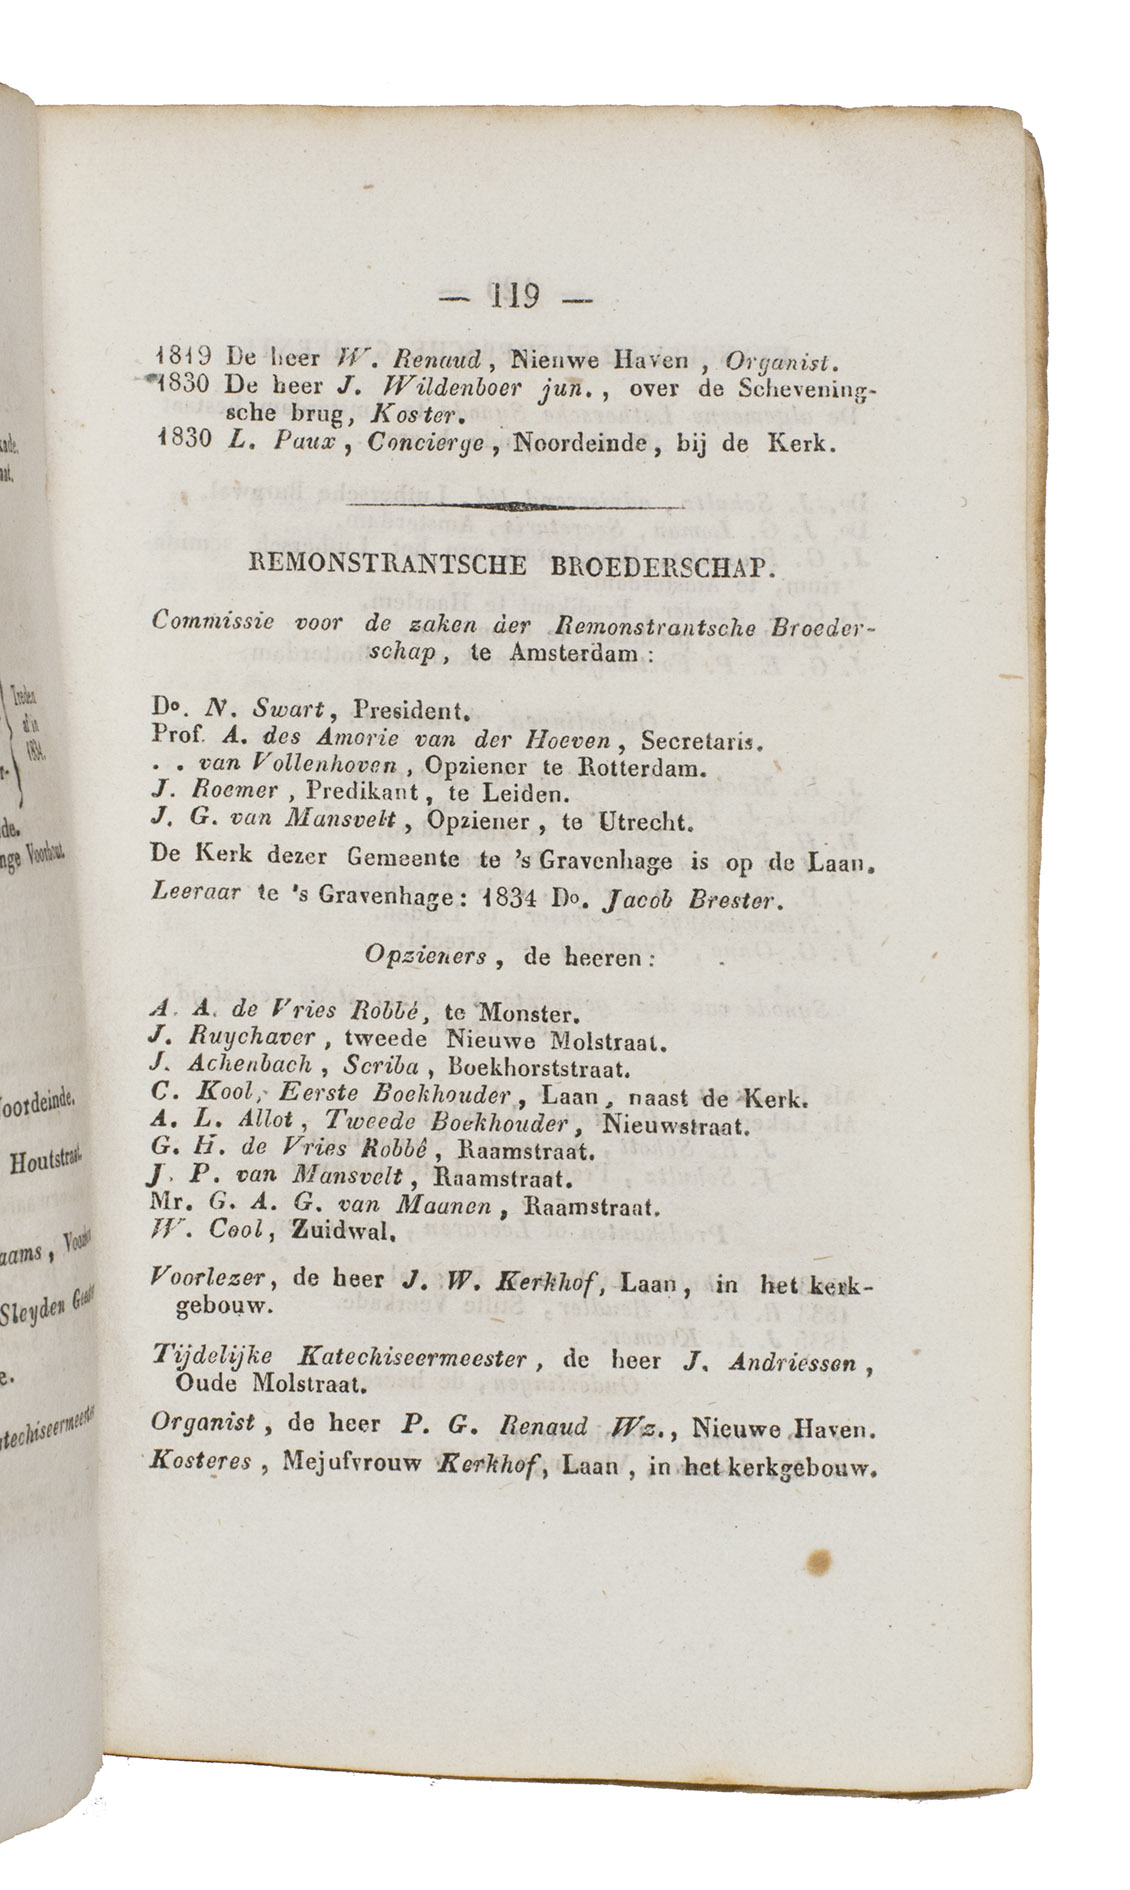 — 119 —
1819 De heer W. Renaud, Nieuwe Haven, Organist.
1830 De heer J. Wildenboer jun., over de Schevening-
sche brug, Koster.
1830 L. Paux, Concierge, Noordeinde, bij de Kerk.
REMONSTRANTSCHE BROEDERSCHAP.
Commissie voor de zaken der Remonstrantsche Broeder-
schap, te Amsterdam:
Do. N. Swart, President.
Prof. A. des Amorie van der Hoeven, Secretaris.
. . van Vollenhoven, Opziener te Rotterdam.
J. Roemer, Predikant, te Leiden.
J. G. van Mansvelt, Opziener, te Utrecht.
De Kerk dezer Gemeente te 's Gravenhage is op de Laan.
Leeraar te 's Gravenhage: 1834 Do. Jacob Brester.
Opzieners, de heeren:
A. A. de Vries Robbé, te Monster.
J. Ruychaver, tweede Nieuwe Molstraat.
J. Achenbach, Scriba, Boekhorststraat.
C. Kool, Eerste Boekhouder, Laan, naast de Kerk.
A. L. Allot, Tweede Boekhouder, Nieuwstraat.
G. H. de Vries Robbé, Raamstraat.
J. P. van Mansvelt, Raamstraat.
Mr. G. A. G. van Maanen, Raamstraat.
W. Cool, Zuidwal.
Voorlezer, de heer J. W. Kerkhof, Laan, in het kerk-
gebouw.
Tijdelijke Katechiseermeester, de heer J. Andriessen,
Oude Molstraat.
Organist, de heer P. G. Renaud Wz., Nieuwe Haven.
Kosteres, Mejufvrouw Kerkhof, Laan, in het kerkgebouw.
Treden
af in
1834.
nge Voorhout.
Noordeinde.
Houtstraat.
Sleyden